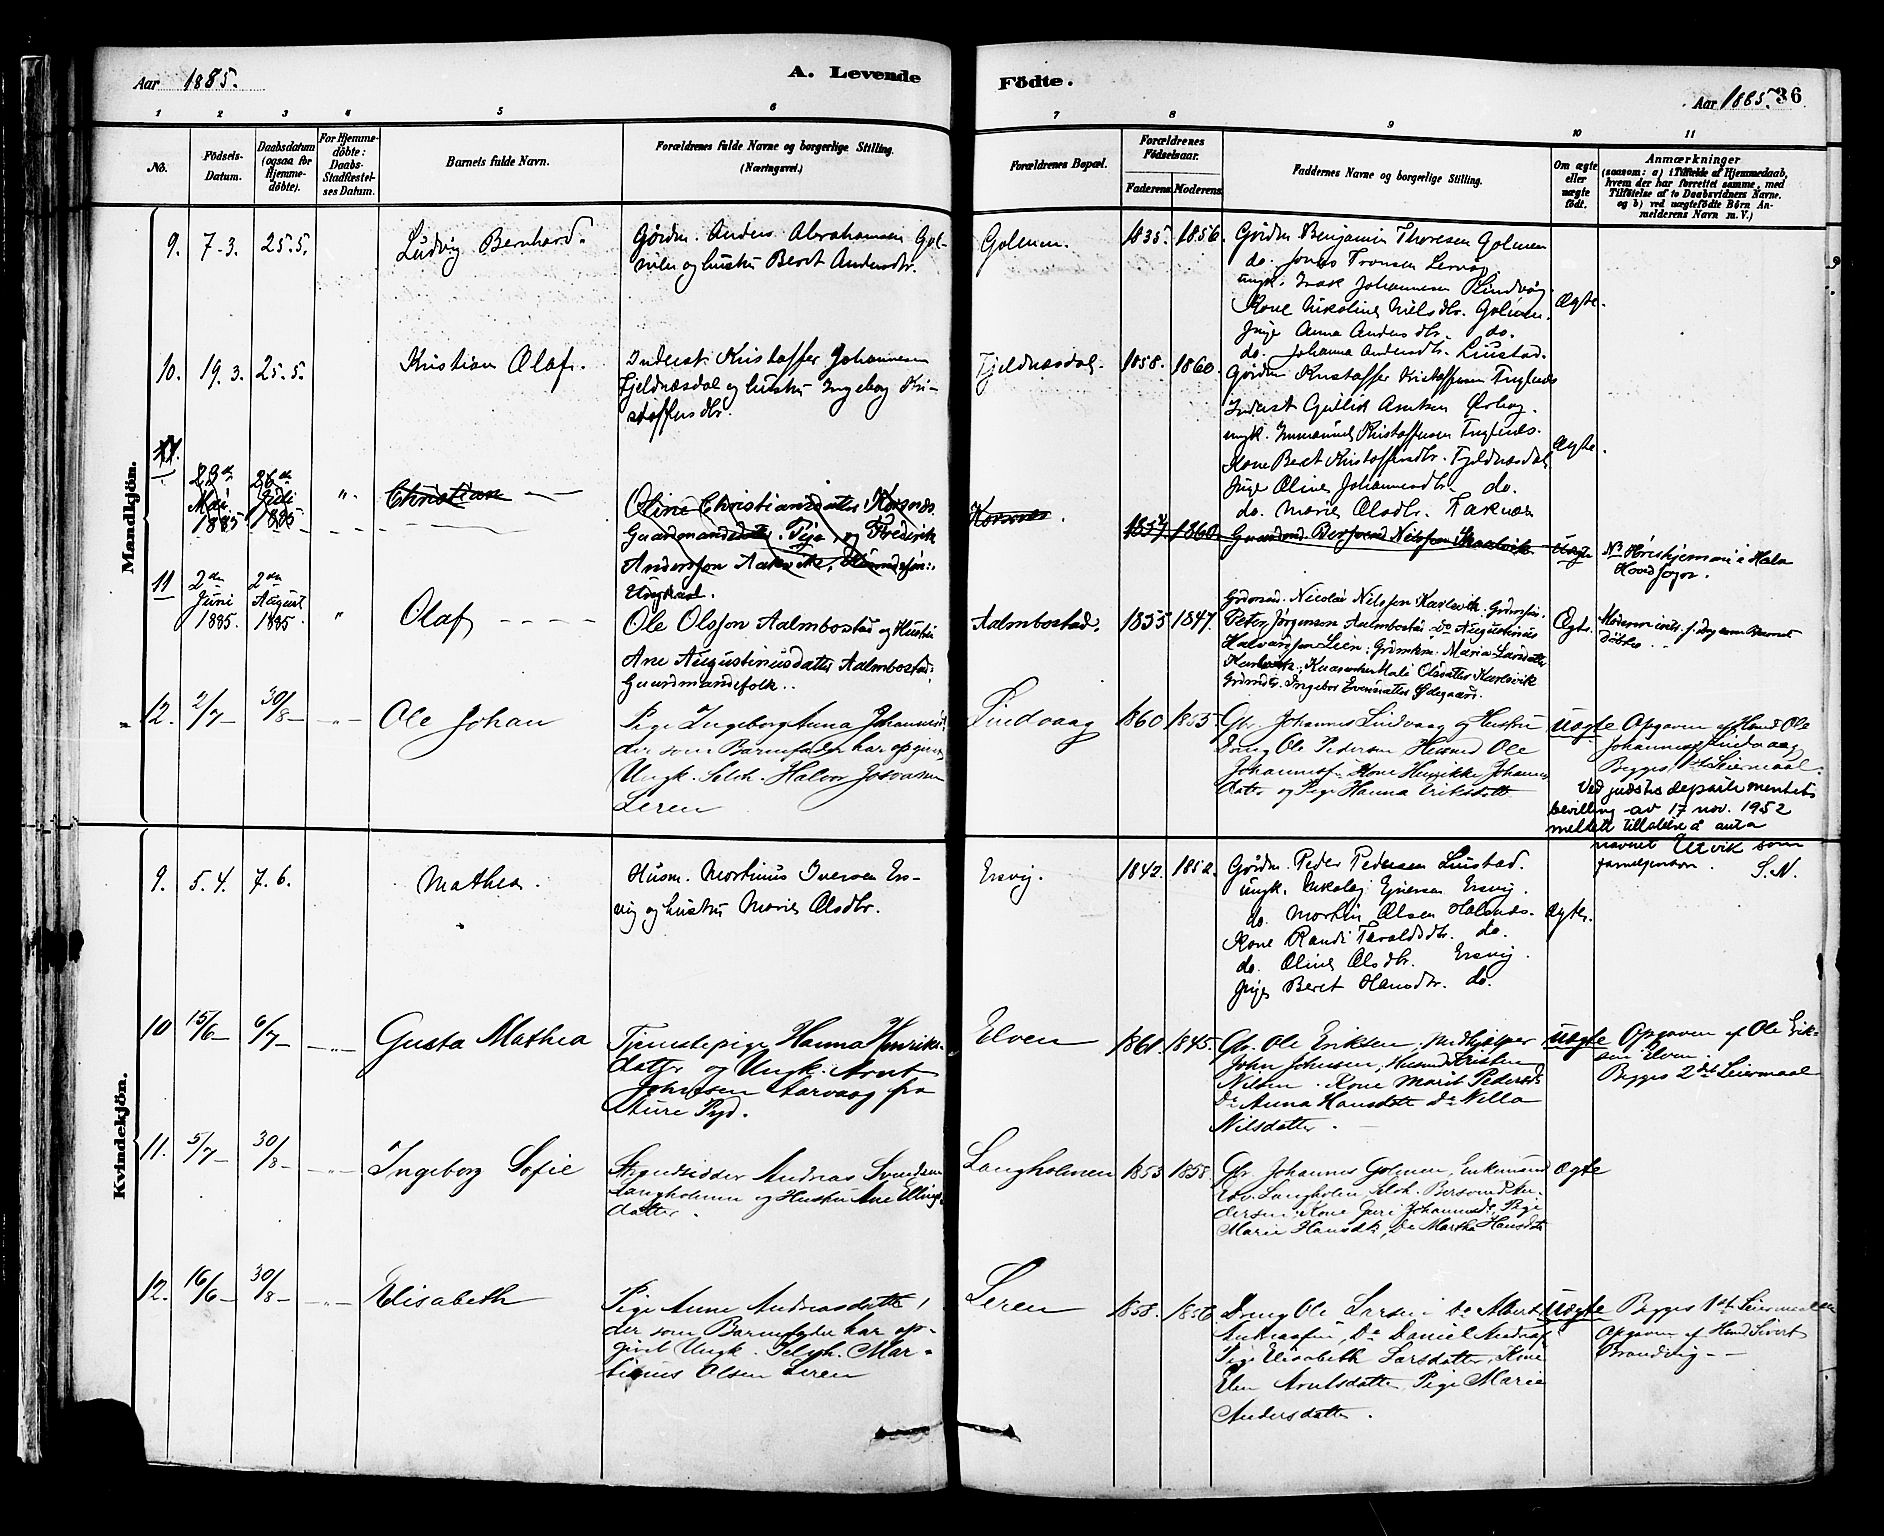 Aar 1885. A. Levende
Födte. Aar 1885. 36
1 2 3 4 5 6
7 8 9 10 11
No.
Födsels-
Datum.
Daabsdatum
(ogsaa for
Hjemme-
döbte).
For Hjemme-
döbte:
Daabs-
Stadfæstel-
ses Datum.
Barnets fulde Navn.
Forældrenes fulde Navne og borgerlige Stilling.
(Næringsvei.)
Forældrenes Bopæl.
Forældrenes
Födselsaar.
Faderens. Moderens.
Faddernes Navne og borgerlige Stilling.
Om ægte
eller
uægte
födt.
Anmærkninger
(saasom: a) i Tilfælde af Hjemmedaab,
hvem der har forrettet samme, med
Tilföielse af to Daabsvidners Navne.
og b) ved uægtefödte Börn An-
melderens Navn m. V.)
Mandkjön.
9. 7-3. 25.5. Ludvig Bernhard.
Gårdm. Anders Abrahamsen Gol-
men og hustru Beret Andersdtr.
Golmen. 1835. 1856.
Gårdm Benjamin Thoresen Golmen
do. Jonas Tronsen Lervåg
ungk. Isak Johannesen Rindvåg
Kone Nikoline Nielsdtr. Golmen.
Pige Anna Andersdtr. do.
do. Johanna Andersdtr. Liustad.
Ægte.
10. 19.3. 25.5. Kristian Olaf.
Inderst Kristoffer Johannesen
Fjeldnæsdal og hustru Ingeborg Kri-
stoffersdtr.
Fjeldnæsdal. 1858. 1860.
Gårdm Kristoffer Kristoffersen
Inderst Gullik Arntsen
ungk. Immanuel Kristoffersen
Kone Beret Kristoffersdtr. Fjeldnæsdal
Pige Oline Johannesdtr. do.
do. Marie Olsdtr. Taknæs
Ægte.
11. 23de Mai 1885. 26de Juli 1885 " Christian
Oline Christiansdatter Korsnæs
Gaardmandsdatter. Pige, og Frederik
Anderssøn
Ungkarl.
Korsnæs. 1857. 1860.
Gaardmd. Bersvend Nilssøn
Uægte
i Halsa
Hovedsogn.
11 2den Juni 1885. 2den August 1885 " Olaf
Ole Olssøn Aalmbostad og Hustru
Ane Augustinusdatter Aalmbostad.
Gaardmandsfolk..
Aalmbostad. 1855 1847.
Grdmd. Nicolai Nilssøn Karlsvik. Grdmssøn.
Peter Jørgenssøn Aalmbostad. Do Augustinus
Halvorssøn Leen; Grdmkn. Maria Larsdatter
Karlsvik; Mali Olsdatter Karlsvik
Grdmdtr. Ingebor Evensdatter Ødegaard.
Ægte.
Moderen
Döbtes
12. 2/7 30/8 " Ole Johan
Pige Ingeborg Anna Johannesdt
der som Barnefader har opgivet
Ungk. Selvh. Halvor Josvasen
Leren
Lindvaag 1860 1855.
Gbr. Johannes Lindvaag og Hustru
Dreng Ole Pedersen Husmd Ole
Johannesf. Kone Henrikke Johannes
datter og Pige Hanna Eriksdatt
Uægte
Opgaven af Husmd Ole
Johannesf Lindvaag
Begges 1st Leiermaal.
Ved justisdepartementets
bevilling av 17 nov. 1952
meddelt tillatelse å anta
navnet Utvik som
familjenavn. S.N.
Kvindekjön.
9. 5.4. 7.6. Mathea.
Husm. Mortinus Iversen Ers-
vig og hustru Marie Olsdtr.
Ersvig. 1842. 1852.
Gårdm. Peder Pedersen Liustad.
ungk. Nikolaj Ersvig.
do. Morten Olsen
Kone Randi Taraldsdtr. do.
do. Oline Olsdtr. Ersvig.
Pige Beret Hansdtr. do.
Ægte.
10 15/6 6/7 " Gusta Mathea
Tjenestepige Hanna Henriks-
datter og Ungk. Arnt
Johnsen Aarvaag fra
Aure Pgd.
Elven 1861. 1845.
Gbr. Ole Eriksen, Medhjælper
John Johnsen, Husmd Kristen
Nilsen. Kone Marit Pedersdt
Do Anna Hansdatt Do Nilla
Nilsdatter.
Uægte
Opgaven af Ole Erik-
sen Elven.
Begges 2det Leiermaal
11. 5/7 30/8 " Ingeborg Sofie
Strandsidder Andreas Svendsen
Langholmen og Hustru Ane Ellings-
datter.
Langholmen 1853 1858.
Gbr. Johannes Golmen, Enkemand
Edv. Langholen Selvh. Bersvend An-
dersen, Kone Guri Johannesdt, Pige
Marie Hansdt, Do Martha Hansdt
Ægte
12. 16/6 30/8 " Elisabeth
Pige Anne Andreasdatter,
der som Barnefader har op-
givet Ungk. Selvh. Mar-
tinus Olsen Leren
Leren 1858. 1856
Dreng Ole Larsen Do Albert
Andreassen, Do Daniel Andreas
Pige Elisabeth Larsdatter, Kone
Elen Arntsdatter, Pige Marie
Andersdatter.
Uægte
Begges 1st Leiermaal
Opgaven af Husmd Sivert
Brandvig